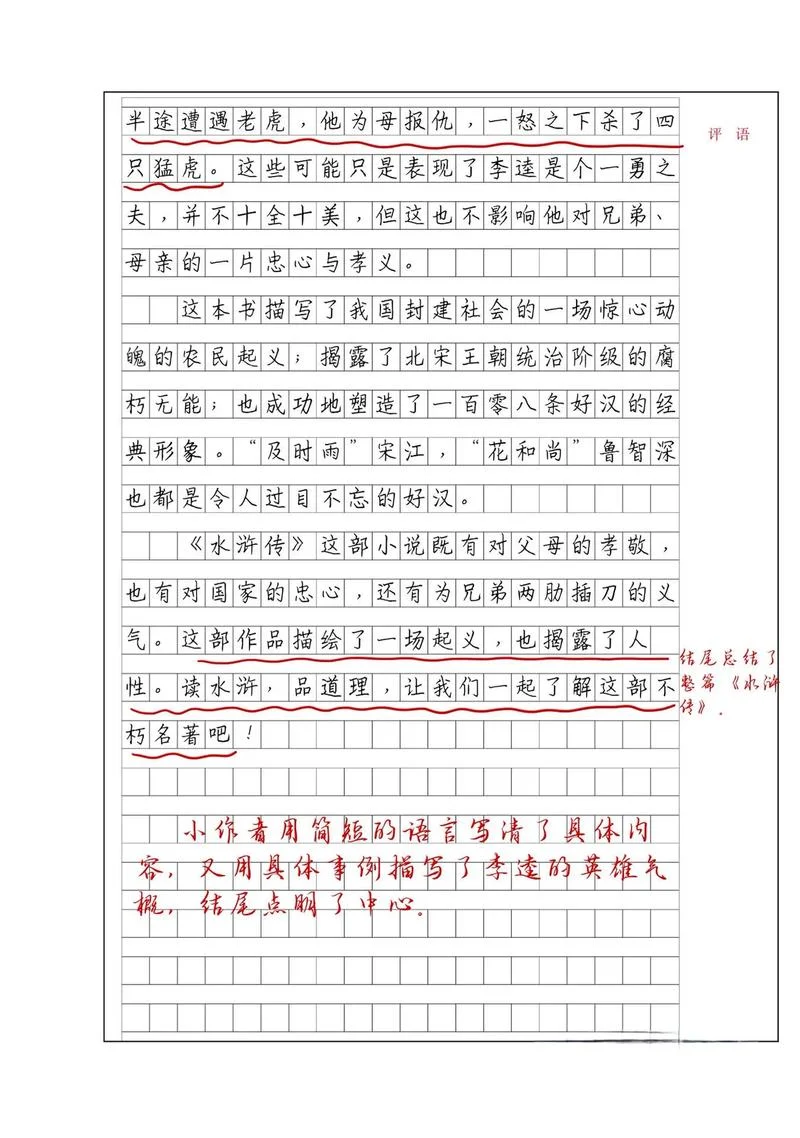 半途遭遇老虎，他为母报仇，一怒之下杀了四
评语
只猛虎。这些可能只是表现了李逵是个一勇之
夫，并不十全十美，但这也不影响他对兄弟、
母亲的一片忠心与孝义。
这本书描写了我国封建社会的一场惊心动
魄的农民起义；揭露了北宋王朝统治阶级的腐
朽无能；也成功地塑造了一百零八条好汉的经
典形象。“及时雨”宋江，“花和尚”鲁智深
也都是令人过目不忘的好汉。
《水浒传》这部小说既有对父母的孝敬，
也有对国家的忠心，还有为兄弟两肋插刀的义
气。这部作品描绘了一场起义，也揭露了人
性。读水浒，品道理，让我们一起了解这部不
朽名著吧！
结尾总结了
整篇《水浒
传》.
小作者用简短的语言写清了具体内
容，又用具体事例描写了李逵的英雄气
概，结尾点明了中心。